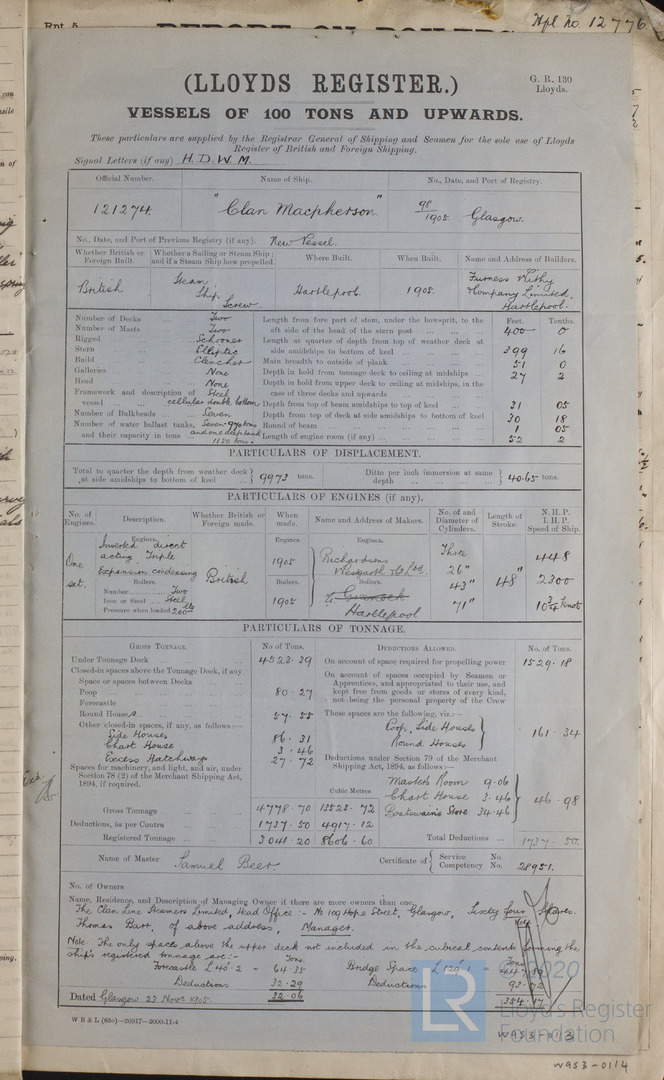 Rpt. 5.
REPORT ON BOILERS
Rpl. no. 12776.
(LLOYDS REGISTER.)
G. R. 130
Lloyds.
VESSELS OF 100 TONS AND UPWARDS.
These particulars are supplied by the Registrar General of Shipping and Seamen for the sole use of Lloyds
Register of British and Foreign Shipping.
Signal Letters (if any) H. D. W. M.
Official Number. Name of Ship. No., Date, and Port of Registry.
121274. "Clan Macpherson" 98/1905 Glasgow.
No., Date, and Port of Previous Registry (if any). New Vessel.
Whether British or Foreign Built. Whether a Sailing or Steam Ship; and if a Steam Ship how propelled. Where Built. When Built. Name and Address of Builders.
British Steam Ship Screw Hartlepool. 1905 Furness Withy Company Limited. Hartlepool.
Number of Decks Two
Number of Masts Two
Rigged Schooner
Stern Elliptic
Build Clencher
Galleries None
Head None
Framework and description of vessel Steel cellular double bottom
Number of Bulkheads Seven
Number of water ballast tanks, and their capacity in tons Seven and one deep tank 1180 tons
Feet. Tenths.
Length from fore part of stem, under the bowsprit, to the aft side of the head of the stern post 400 0
Length at quarter of depth from top of weather deck at side amidships to bottom of keel 399 16
Main breadth to outside of plank 51 0
Depth in hold from tonnage deck to ceiling at midships 27 2
Depth in hold from upper deck to ceiling at midships, in the case of three decks and upwards
Depth from top of beam amidships to top of keel 31 05
Depth from top of deck at side amidships to bottom of keel 30 18
Round of beam 1 05
Length of engine room (if any) 52 2
PARTICULARS OF DISPLACEMENT.
Total to quarter the depth from weather deck at side amidships to bottom of keel 9973 tons. Ditto per inch immersion at same depth 40.65 tons.
PARTICULARS OF ENGINES (if any).
No. of Engines. Description. Whether British or Foreign made. When made. Name and Address of Makers. No. of and Diameter of Cylinders. Length of Stroke. N. H. P. I. H. P. Speed of Ship.
One set. Engines. Inverted direct acting Triple Expansion condensing British Engines. 1905 Engines. Richardsons Westgarth & Co Ltd Three 26" 43" 71" 48" 448 2300 10 3/4 knots
Boilers. Number Two Boilers. 1905 Boilers. Hartlepool
Iron or Steel Steel
Pressure when loaded 200 lbs
PARTICULARS OF TONNAGE.
GROSS TONNAGE. No of Tons. DEDUCTIONS ALLOWED. No. of Tons.
Under Tonnage Deck 4523.39
Closed-in spaces above the Tonnage Deck, if any
Space or spaces between Decks
Poop 80.27
Forecastle
Round Houses 57.55
Other closed-in spaces, if any, as follows:—
Side Houses 86.31
Chart House 3.46
Excess Hatchways 27.72
Spaces for machinery, and light, and air, under Section 78 (2) of the Merchant Shipping Act, 1894, if required.
Cubic Metres
Gross Tonnage 4778.70 13523.72
Deductions, as per Contra 1737.50 4917.12
Registered Tonnage 3041.20 8606.60
On account of space required for propelling power 1529.18
On account of spaces occupied by Seamen or Apprentices, and appropriated to their use, and kept free from goods or stores of every kind, not being the personal property of the Crew
These spaces are the following, viz.:—
Poop, Side Houses
Round Houses 161.34
Deductions under Section 79 of the Merchant Shipping Act, 1894, as follows:—
Master's Room 9.06
Chart House 3.46
Boatswain's Store 34.46
46.98
Total Deductions 1737.50.
Name of Master Samuel Beer Certificate of Service No. Competency No. 28951.
No. of Owners
Name, Residence, and Description of Managing Owner if there are more owners than one.
The Clan Line Steamers Limited, Head Office:- No 109 Hope Street, Glasgow, Sixty four Shares.
Thomas Barr, of above address, Manager.
Note. The only spaces above the upper deck not included in the cubical contents forming the
ship's registered tonnage are:-
Tons. Tons
Forecastle L 40.2 = 64.35 Bridge Space L 129.1 = 447.89
Deductions 32.29 Deductions 93.72
32.06 354.17
Dated Glasgow 23 Novr 1905.
W B & L (83c)—20917—2000-11-4
W953-0113
W953-0114
LR
© 2020
Lloyd's Register
Foundation